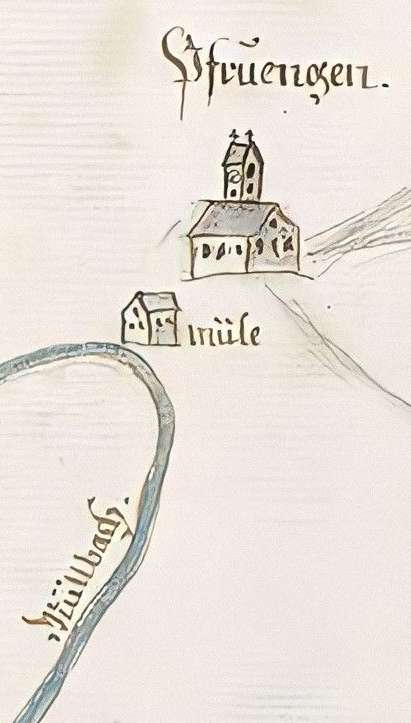 Pfrūengen.
müle
Müllbach.